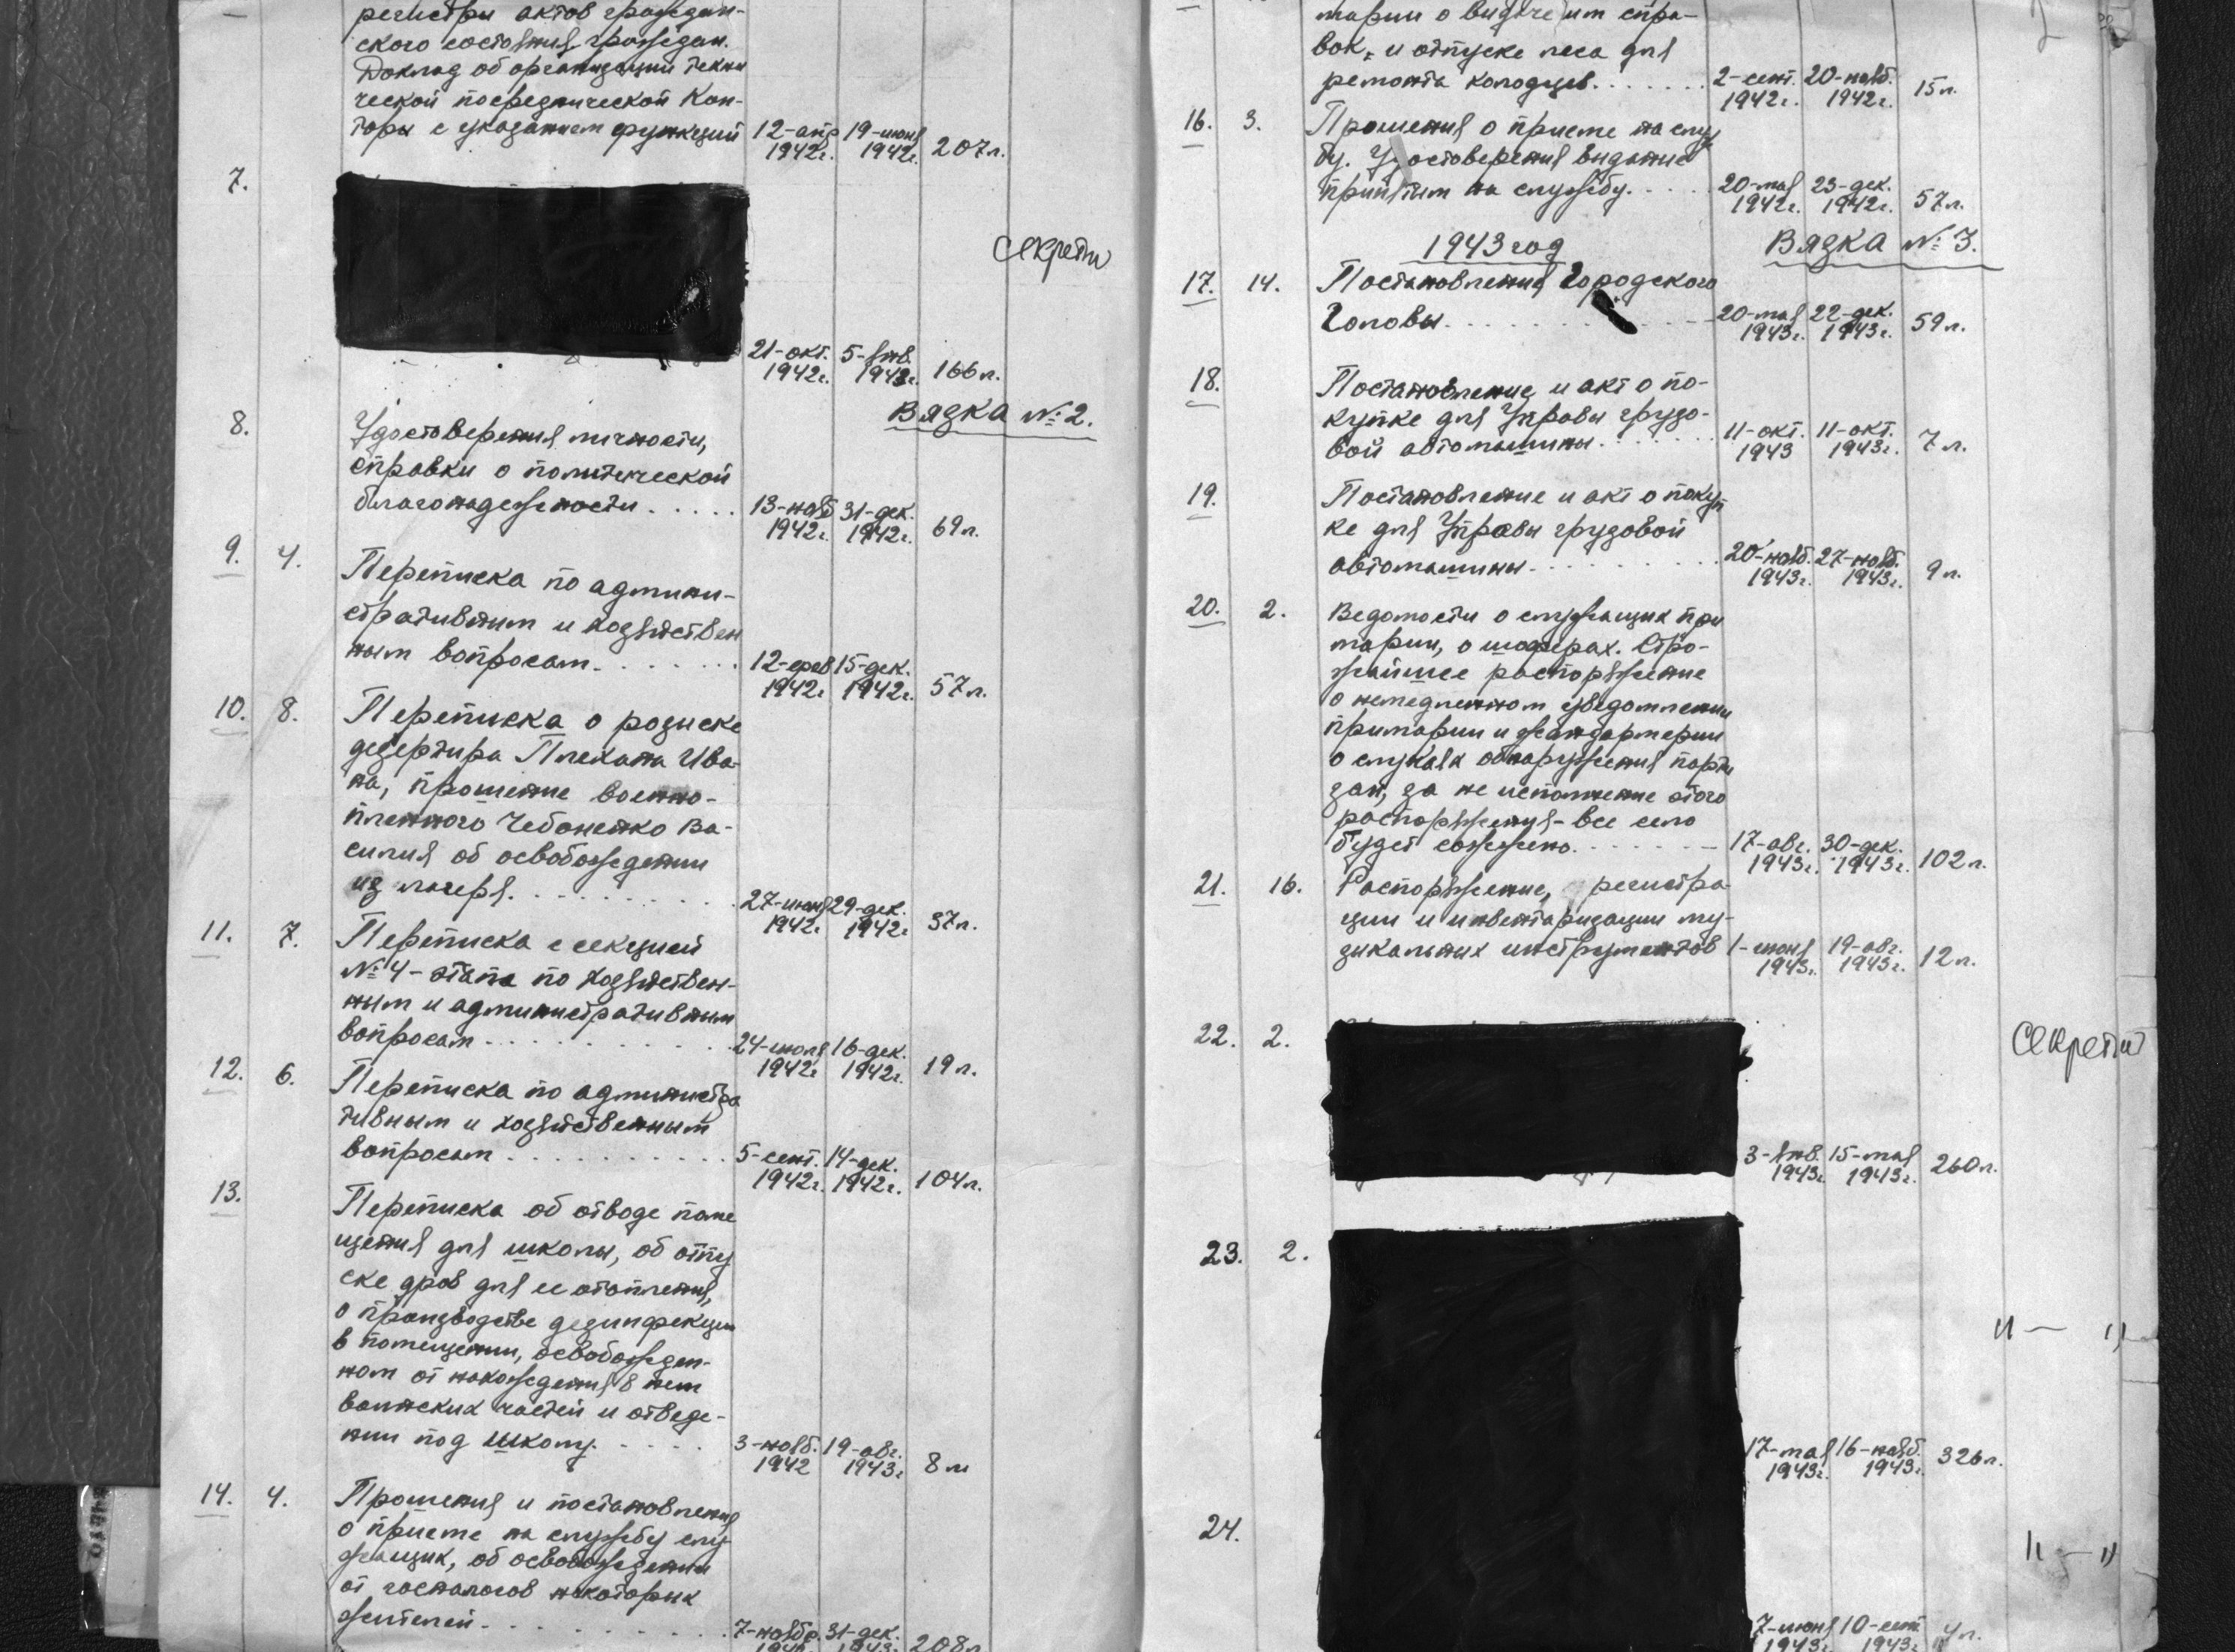 регистры актов граждан-
ского состояния граждан.
Доклад об организации техни
ческой посреднической Кон-
торы с указанием функций 12-апр 1942г. 19-июня 1942г. 207л.
7.
Секретн
21-окт. 1942г. 5-янв. 1943г. 166л.
Вязка №2.
8. Удостоверения личности,
справки о политической
благонадежности..... 13-нояб 1942г. 31-дек. 1942г. 69л.
9. 4. Переписка по админи-
стративным и хозяйствен
ным вопросам....... 12-фев 1942г 15-дек. 1942г. 57л.
10. 8. Переписка о розыске
дезертира Плехана Ива-
на, прошение военно-
пленного Чебоненко Ва-
силия об освобождении
из лагеря.......... 27-июня 1942г 29-дек. 1942г 37л.
11. 7. Переписка с секцией
№4-этапа по хозяйствен-
ным и административным
вопросам.......... 24-июля 1942г 16-дек. 1942г. 19л.
12. 6. Переписка по администра
тивным и хозяйственным
вопросам.......... 5-сент. 1942г. 14-дек. 1942г. 104л.
13. Переписка об отводе поме
щения для школы, об отпу
ске дров для ее отопления,
о производстве дезинфекции
в помещении, освобожден-
ном от нахождения в нем
воинских частей и отведе-
нии под школу..... 3-нояб. 1942 19-авг. 1943г 8л
14. 4. Прошения и постановления
о приеме на службу слу
жащих, об освобождении
от госналогов некоторых
жителей.......... 7-ноябр. 31-дек. 1943г. 208л
марии о выдаче им спра-
вок, и отпуске леса для
ремонта колодцев....... 2-сент. 1942г. 20-нояб. 1942г. 15л.
16. 3. Прошения о приеме на служ
бу. Удостоверения выданные
принятым на службу..... 20-мая 1942г. 23-дек. 1942г. 57л.
1943 год Вязка №3.
17. 14. Постановления Городского
Головы........... 20-мая 1943г. 22-дек. 1943г. 59л.
18. Постановление и акт о по-
купке для Управы грузо-
вой автомашины....... 11-окт. 1943 11-окт. 1943г. 7л.
19. Постановление и акт о покуп
ке для Управы грузовой
автомашины.......... 20-нояб. 1943г. 27-нояб. 1943г. 9л.
20. 2. Ведомости о служащих при
марии, о шоферах. Стро-
жайшее распоряжение
о немедленном уведомлении
примарии и жандармерии
о случаях обнаружения парти
зан, за не исполнение этого
распоряжения-все село
будет сожжено........ 17-авг. 1943г. 30-дек. 1943г. 102л.
21. 16. Распоряжение, регистра
ции и инвентаризации му-
зыкальных инструментов 1-июня 1943г. 19-авг. 1943г. 12л.
22. 2. Секретн
3-янв. 1943г. 15-мая 1943г. 260л.
23. 2.
"—"
17-мая 1943г. 16-нояб. 1943г. 326л.
24.
"—"
7-июня 1943г. 10-сент 1943г. 4л.